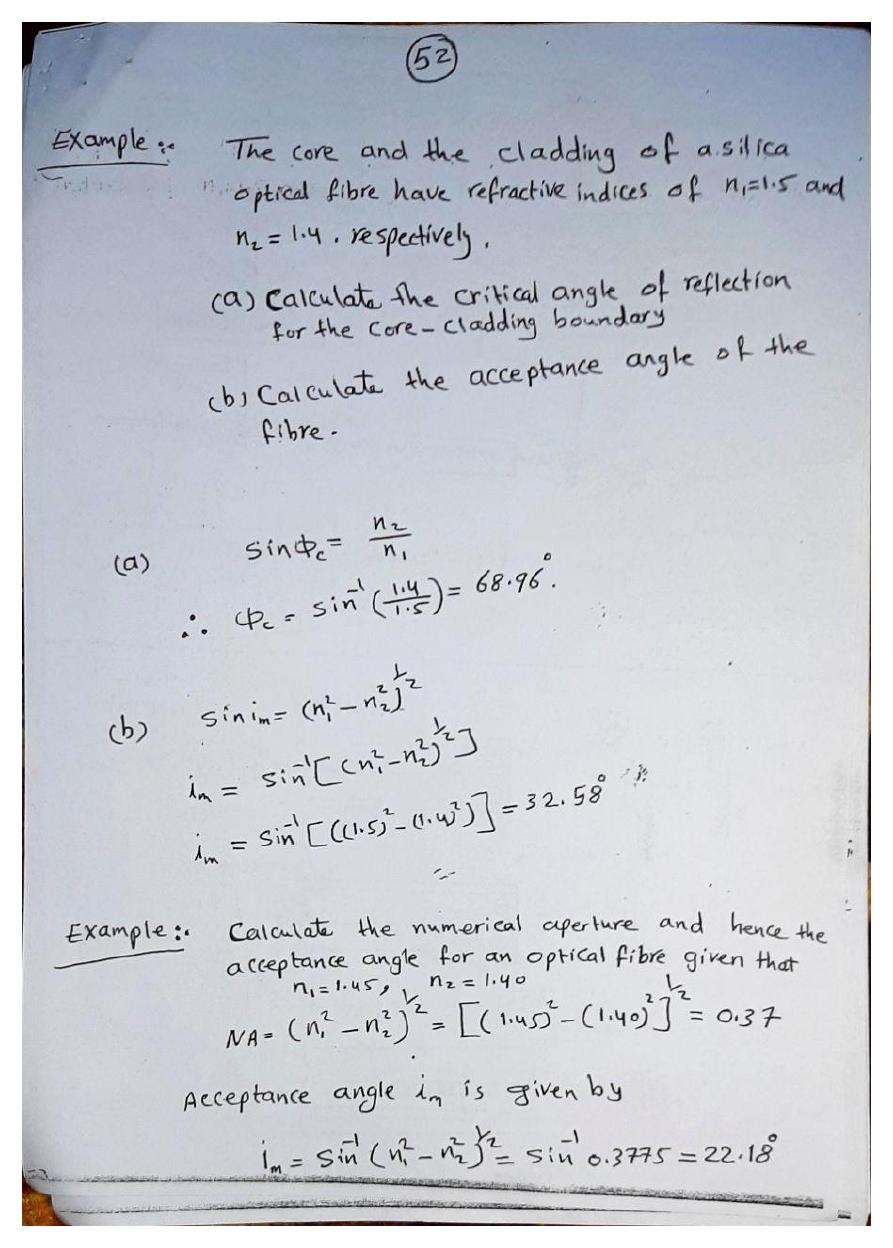 52
Example :-
The core and the cladding of a silica
optical fibre have refractive indices of n₁=1.5 and
n₂ = 1.4 . respectively.
(a) Calculate the critical angle of reflection
for the core-cladding boundary
(b) Calculate the acceptance angle of the
fibre.
(a) sinΦc = n₂/n₁
∴ Φc = sin⁻¹(1.4/1.5) = 68.96°.
(b) sin im = (n₁² − n₂²)^½
im = sin⁻¹[(n₁² − n₂²)^½]
im = sin⁻¹[((1.5)² − (1.4)²)] = 32.58°
Example :- Calculate the numerical aperture and hence the
acceptance angle for an optical fibre given that
n₁ = 1.45, n₂ = 1.40
NA = (n₁² − n₂²)^½ = [(1.45)² − (1.40)²]^½ = 0.37
Acceptance angle im is given by
im = sin⁻¹(n₁² − n₂²)^½ = sin⁻¹ 0.3775 = 22.18°